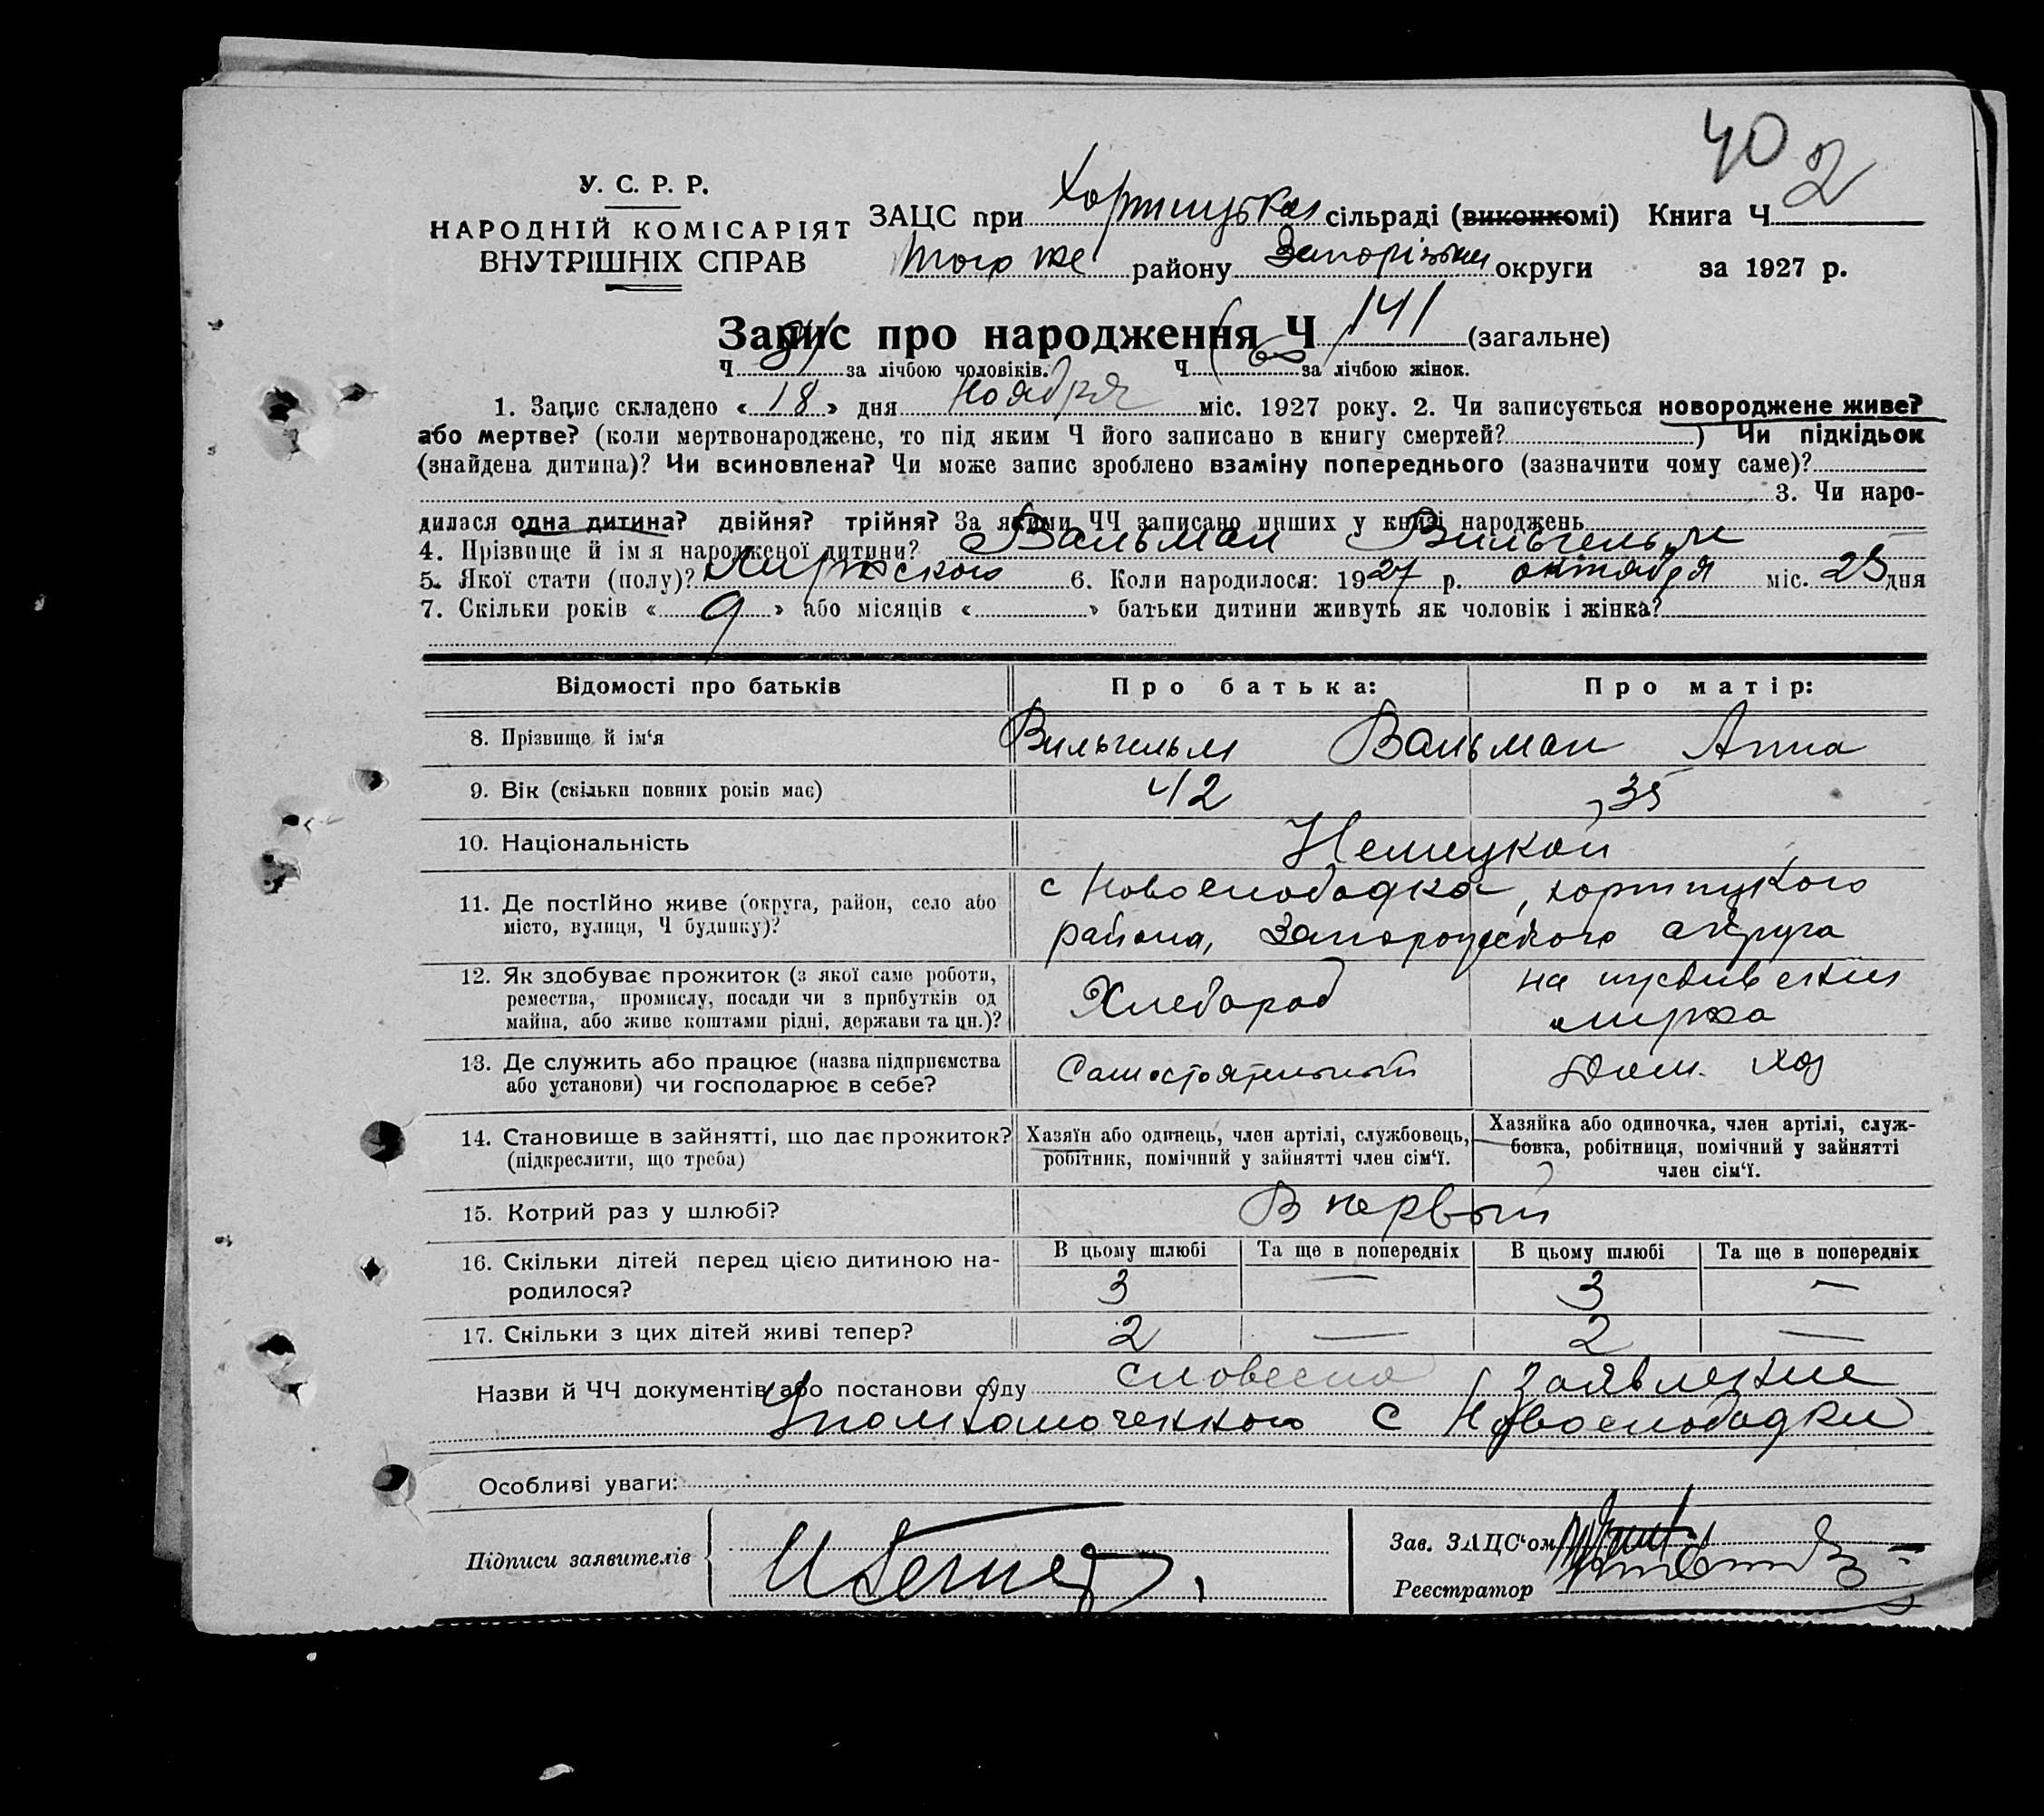 40 2
У. С. Р. Р.
НАРОДНІЙ КОМІСАРІЯТ
ВНУТРІШНІХ СПРАВ
ЗАЦС при Хортицькая сільраді (виконкомі) Книга Ч
того же району Запорізьки округи за 1927 р.
Запис про народження Ч 141 (загальне)
Ч за лічбою чоловіків. Ч за лічбою жінок.
1. Запис складено « 18 » дня Ноября міс. 1927 року. 2. Чи записується новороджене живе?
або мертве? (коли мертвонароджене, то під яким Ч його записано в книгу смертей? ) Чи підкідьок
(знайдена дитина)? Чи всиновлена? Чи може запис зроблено взаміну попереднього (зазначити чому саме)?
3. Чи наро-
дилася одна дитина? двійня? трійня? За якими ЧЧ записано инших у книзі народжень
4. Прізвище й ім я народженої дитини? Вальман Вильгельм
5. Якої стати (полу)? Мужского 6. Коли народилося: 1927 р. октября міс. 25 дня
7. Скільки років « 9 » або місяців « » батьки дитини живуть як чоловік і жінка?
Відомості про батьків Про батька: Про матір:
8. Прізвище й ім‘я Вильгельм Вальман Анна
9. Вік (скільки повних років має) 42 35
10. Національність Немецкой
11. Де постійно живе (округа, район, село або
місто, вулиця, Ч будинку)?
с Новослободка, хортицкого
района, Запорожского округа
12. Як здобуває прожиток (з якої саме роботи,
ремества, промислу, посади чи з прибутків од
майна, або живе коштами рідні, держави та ин.)?
Хлебороб
на иждивении
мужа
13. Де служить або працює (назва підприємства
або установи) чи господарює в себе?
Самостоятельный Дом. хоз
14. Становище в зайнятті, що дає прожиток?
(підкреслити, що треба)
Хазяїн або одинець, член артілі, службовець,
робітник, помічний у зайнятті член сім‘ї.
Хазяйка або одиночка, член артілі, служ-
бовка, робітниця, помічний у зайнятті
член сім‘ї.
15. Котрий раз у шлюбі? В первый
16. Скільки дітей перед цією дитиною на-
родилося?
В цьому шлюбі Та ще в попередніх В цьому шлюбі Та ще в попередніх
3 — 3 —
17. Скільки з цих дітей живі тепер? 2 — 2 —
Назви й ЧЧ документів або постанови суду словесно заявление
Уполномоченного с Новослободки
Особливі уваги:
Підписи заявителів
Зав. ЗАЦС‘ом
Реєстратор